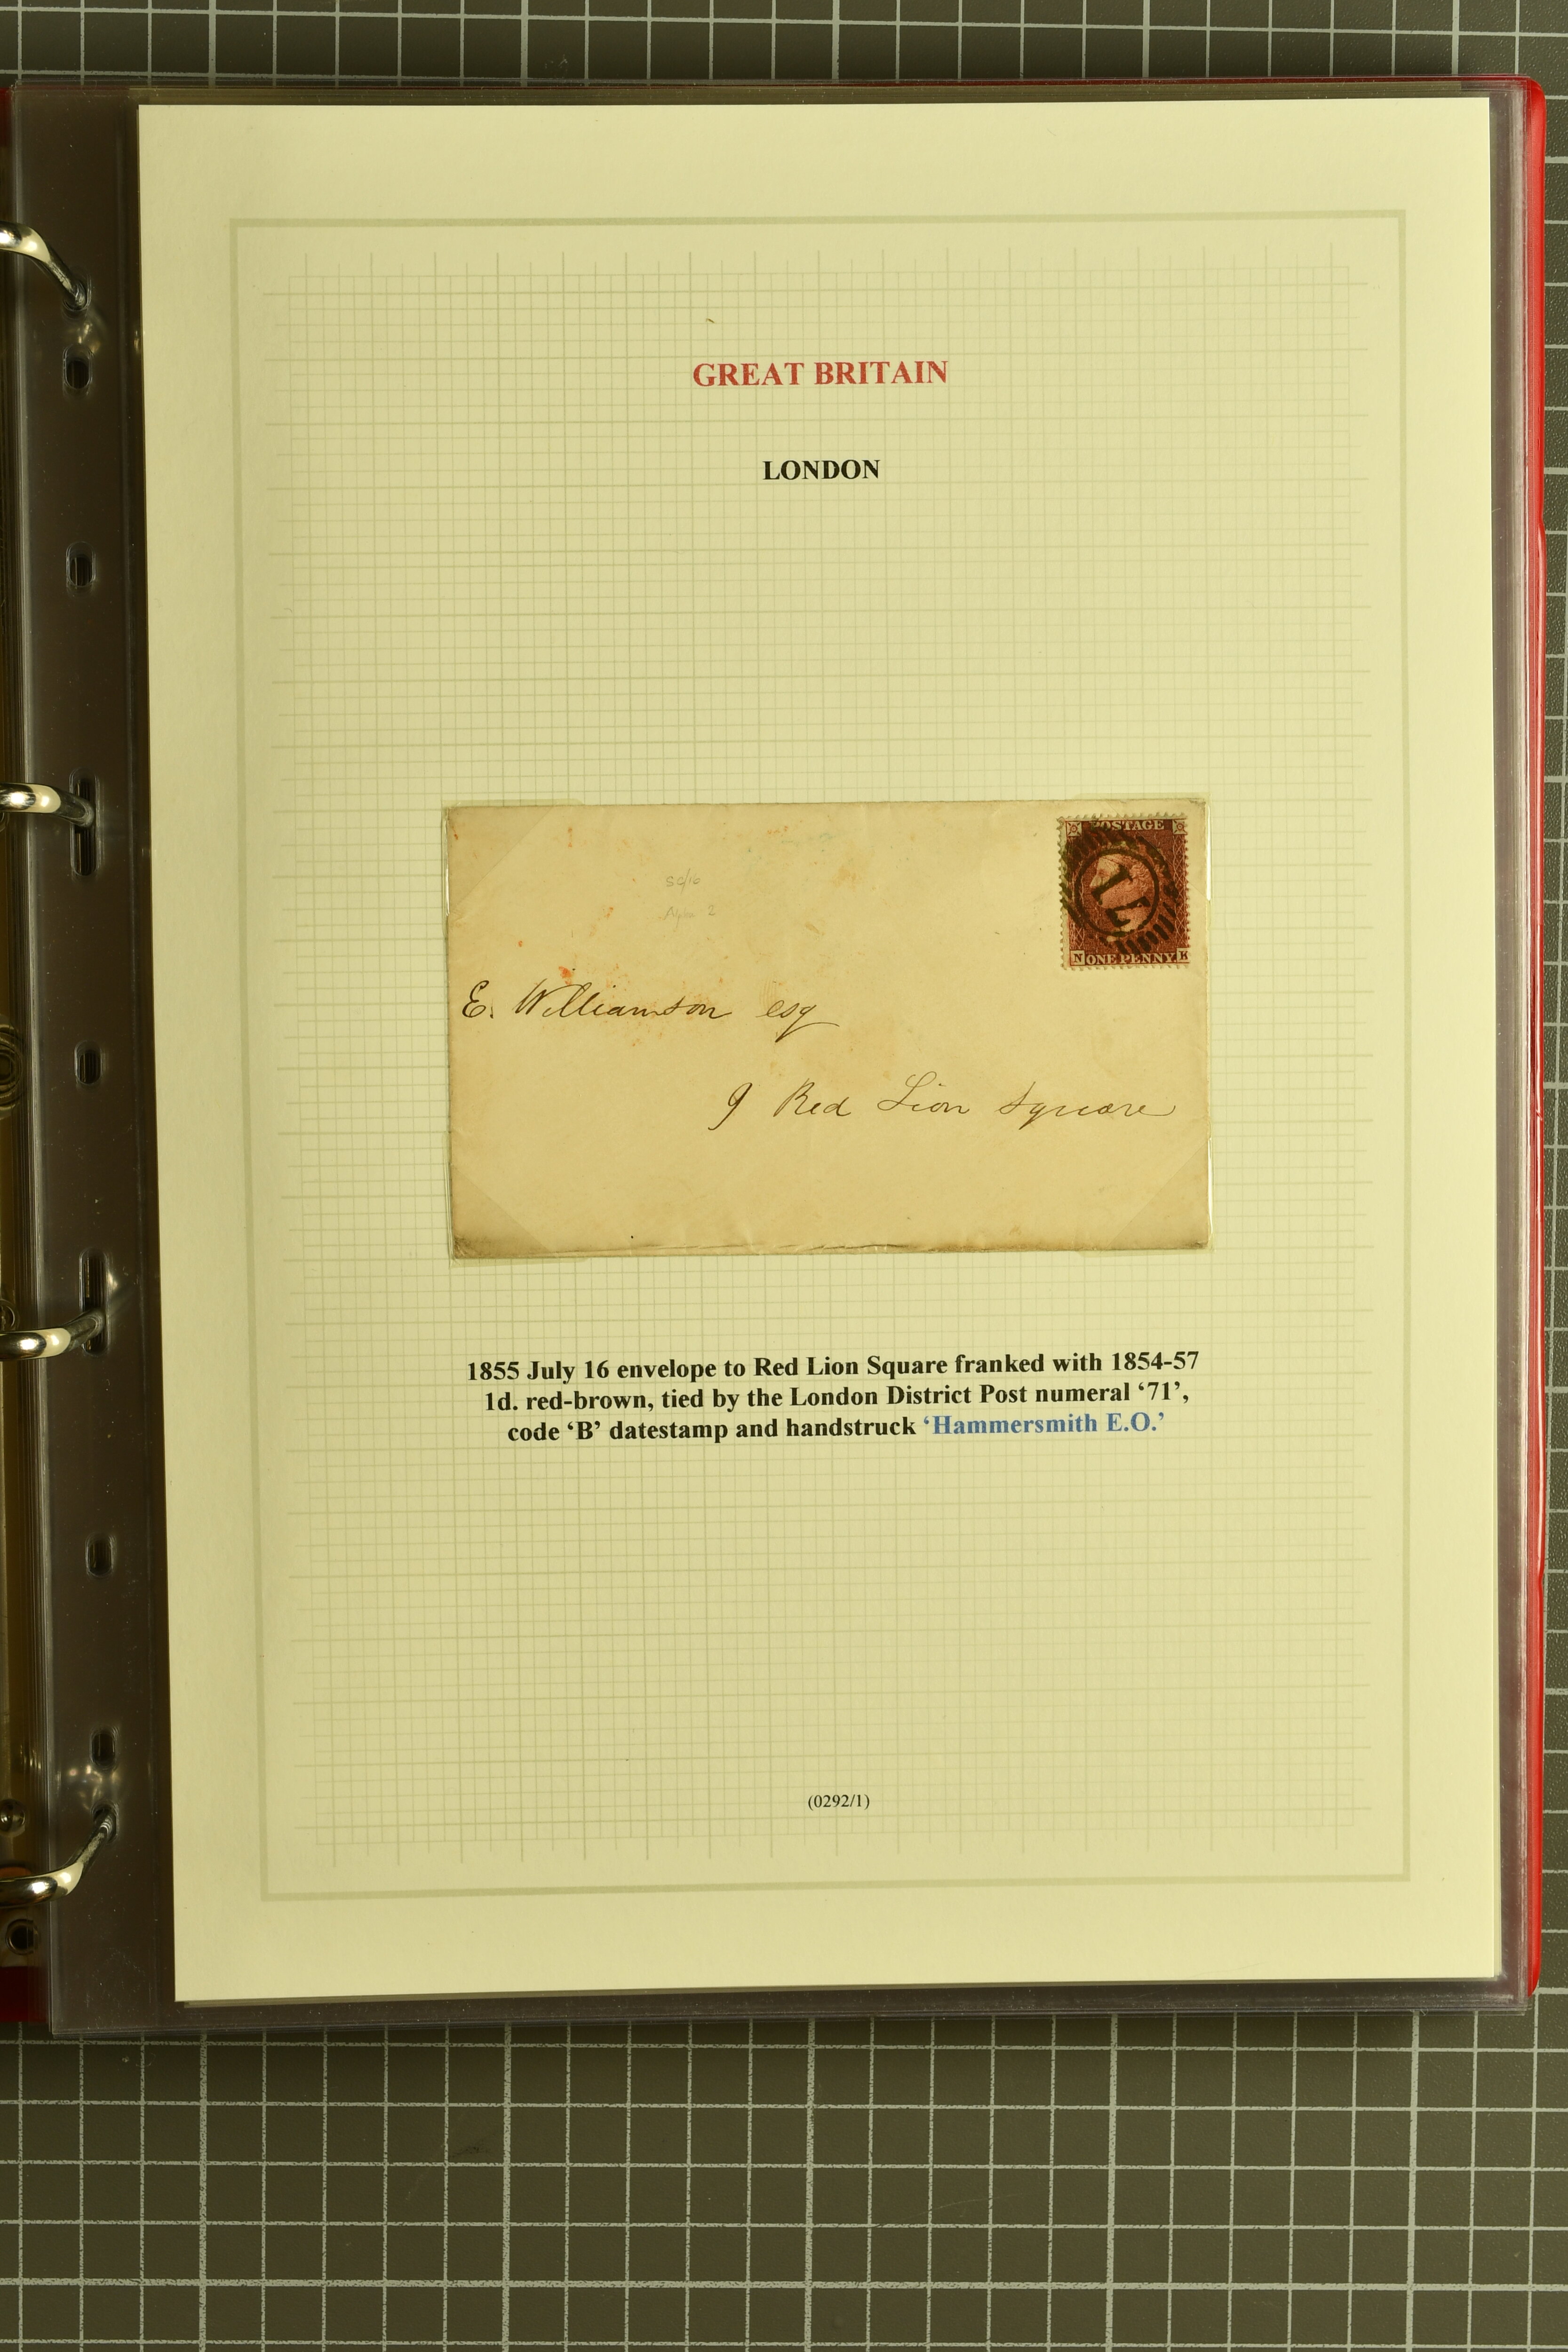 GREAT BRITAIN
LONDON
POSTAGE
71
N ONE PENNY K
SG/16
Alpha 2
E. Williamson esq
9 Red Lion Square
1855 July 16 envelope to Red Lion Square franked with 1854-57
1d. red-brown, tied by the London District Post numeral ‘71’,
code ‘B’ datestamp and handstruck ‘Hammersmith E.O.’
(0292/1)